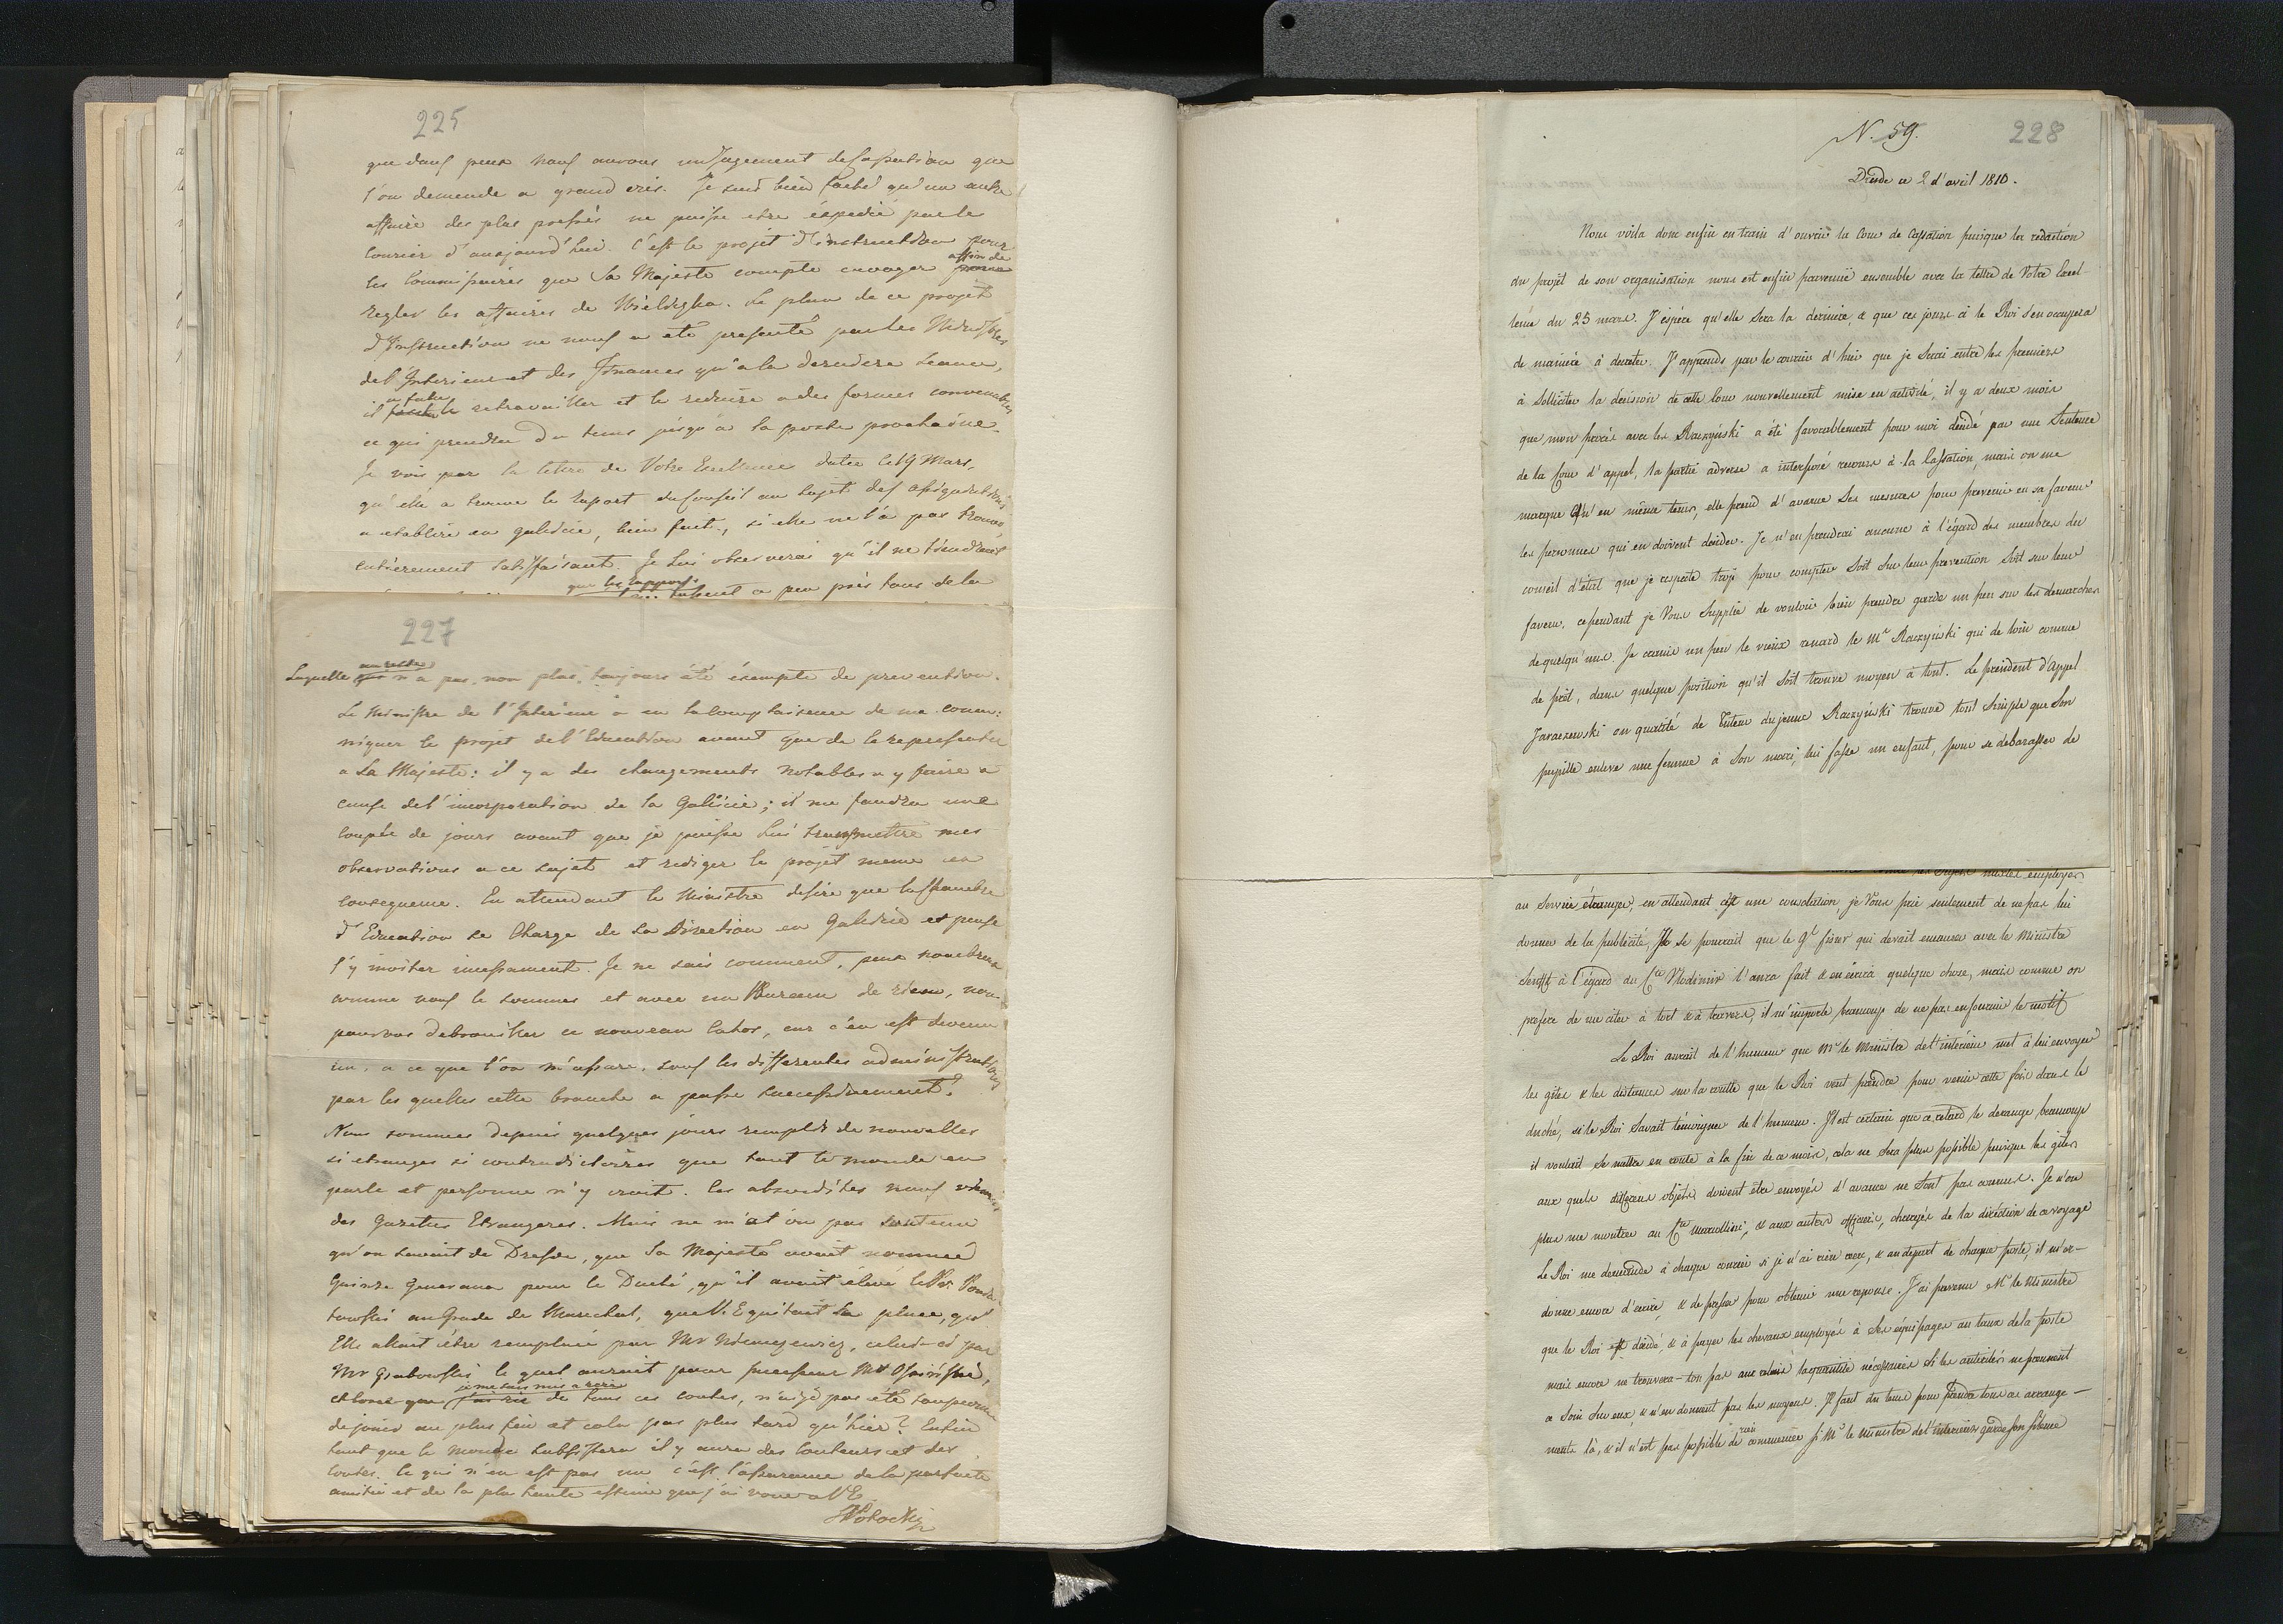 225
que dans peu nous aurons un Jugement de Cassation que
l'on demande a grand cris. Je suis bien faché qu'un autre
affaire des plus pressés ne puisse etre éxpedié par le
Courier d'aujourd'hui. C'est le projet d'instruction pour
les Commissaires que Sa Majesté compte envoyer affin de
regler les affaires de Wieliczka. Le plan de ce projet
d'Instruction ne nous a été presenté par les Ministres
del'Interieur et des Finances qu'a la derniere Seance,
il a fallu le retravailler et le reduire a des formes convenables
ce qui prendra du tems jusqu'à la poste prochaine.
Je vois par la lettre de Votre Excellence datée le 19 Mars,
qu'elle a trouvé le Raport du Conseil au sujet des assignations
a etablire en galicie, bien fait, si elle ne l'a pas trouvé
entierement satisfaisant. Je lui observerai qu'il ne tiendroit
que les rapports a peu près tous de la
227
Laquelle au reste n'a pas, non plus, toujours été exempte de prevention.
Le Ministre de l'Interieur a eu la complaisance de me commu:
niquer le projet del'Education avant que de le representer
a Sa Majesté: il y a des changements notables a y faire a
cause del'incorporation de la Galicie; il me faudra une
couple de jours avant que je puisse lui transmettre mes
observations a ce sujet et rediger le projet meme en
consequence. En attendant le Ministre desire que la Chambre
d'Education se charge de la Direction en Galicie et pense
l'y inviter incessament. Je ne sais comment, peu nombreux
comme nous le sommes et avec un Bureau de rien, nous
pourons debrouiller ce nouveau cahos, car c'en est devenu
un, a ce que l'on m'assure, sous les differentes administrations
par les quelles cette branche a passé successivement.
Nous sommes depuis quelques jours remplis de nouvelles
si etranges si contradictoires que tout le monde en
parle et personne n'y croit. Ces absurdités nous viennent
des Gazettes Etrangeres. Mais ne m'at'on pas soutenu
qu'on savait de Dresde, que Sa Majesté avait nommé
Quinze Generaux pour le Duché, qu'il avait elevé le Pce Ponia-
towski au Grade de Marechal, que V.E quitait sa place, qu'
Elle allait être remplacé par Mr Niemcewicz, celui-ci par
Mr Grabowski le quel auroit pour successeur Mr Osinski,
je me suis mis a rire de tous ces contes, n'aije pas été soupçonné
de jouer au plus fin et cela pas plus tard qu'hier? Enfin
tant que le monde subsistera il y aura des conteurs et des
contes. Ce qui n'en est pas un c'est l'assurance de la parfaite
amitié et de la plus haute estime que j'ai voué a VE
SPotocki
N. 59.
228
Dresde ce 2 d'avril 1810.
Nous voila donc enfin en train d'ouvrir la Cour de Cassation puisque la redaction
du projet de son organisation nous est enfin parvenüe ensemble avec la lettre de Votre Excel-
lence du 25 mars. J'éspère qu'elle sera la derniere, & que ces jours ci le Roi s'en occupera
de maniere à decreter. J'apprends par le courier d'hui que je serai entre les premiers
à solliciter la décision de cette Cour nouvellement mise en activité, il y a deux mois
que mon procès avec les Raczyński a été favorablement pour moi décidé par une Sentence
de la Cour d'appel, la partie adverse a interposé recours à la Cassation, mais on me
marque qu'en même tems, elle prend d'avance ses mesures pour prevenir en sa faveur
les personnes qui en doivent decider. Je n'en prendrai aucune à l'égard des membres du
conseil d'état que je respecte trop pour compter soit sur leur prevention soit sur leur
faveur, cependant je Vous supplie de vouloir bien prendre garde un peu sur les demarches
de quelqu'uns. Je crains un peu le vieux renard le Mr Raczyński qui de loin comme
de près, dans quelque position qu'il soit trouve moyen à tout. Le president d'Appel
Jaraczewski en qualité de Tuteur du jeune Raczyński trouve tout simple que son
pupille enleve une femme à son mari, lui fasse un enfant, pour se debarasser de
employer
au service étranger, en attendant c'est une consolation, je Vous prie seulement de ne pas lui
donner de la publicité, Il se pourrait que le Gl fiszer qui devait en causer avec le Ministre
Senfft à l'égard du Cte Wlodimir l'aura fait & en écrira quelque chose, mais comme on
prefere de me citer à tort & à travers, il m'importe beaucoup de ne pas en fournir le motif
Le Roi aurait de l'humeur que Mr le Ministre de l'intérieur met à lui envoyer
les gites & les distances sur la routte que le Roi veut prendre pour venir cette fois dans le
duché, si le Roi savait témoigner de l'humeur. Il est certain que ce retard le derange beaucoup
il voulait se mettre en route à la fin de ce mois, cela ne sera plus possible puisque les gites
aux quels differens objets doivent être envoyés d'avance ne sont pas connus. Je n'ose
plus me montrer au Cte Marcollini, & aux autres officiers, chargés de la diréction de ce voyage
Le Roi me demande à chaque courier si je n'ai rien reçu, & au depart de chaque poste, il m'or-
donne encore d'écrire, & de presser pour obtenir une reponse. J'ai prevenu Mr le Ministre
que le Roi est décidé, & à payer les chevaux employés à ses équipages au taux de la poste
mais encore ne trouvera-ton pas aux relais la quantité nécessaire si les autorités ne prennent
ce soin sur eux, & n'en donnent pas les moyens. Il faut du tems pour prendre tous ces arrange-
ments là, & il n'est pas possible de rien commencer si Mr le ministre de l'interieur garde son silence